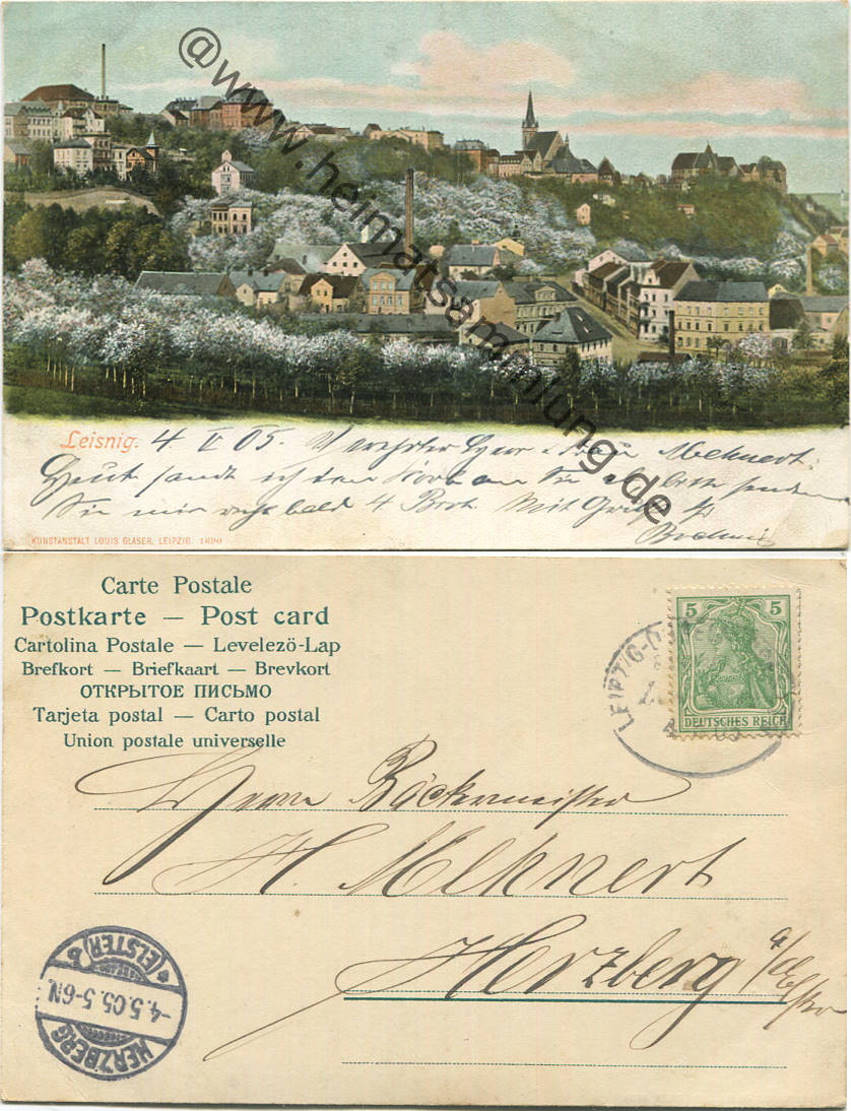 @www.heimatsammlung.de
Leisnig. 4. V 05. Verehrter Herr u. Frau Mehnert.
Heut sandt ich den Korb an Sie ab bitte senden
Sie mir recht bald 4 Brot. Mit Gruß
KUNSTANSTALT LOUIS GLASER, LEIPZIG.
Carte Postale
Postkarte — Post card
Cartolina Postale — Levelező-Lap
Brefkort — Briefkaart — Brevkort
ОТКРЫТОЕ ПИСЬМО
Tarjeta postal — Carto postal
Union postale universelle
5 5
DEUTSCHES REICH
LEIPZIG-
Herrn Bäckermeister
H. Mehnert
Herzberg a/Elster
HERZBERG
-4.5.05.5-6N.
(ELSTER) b